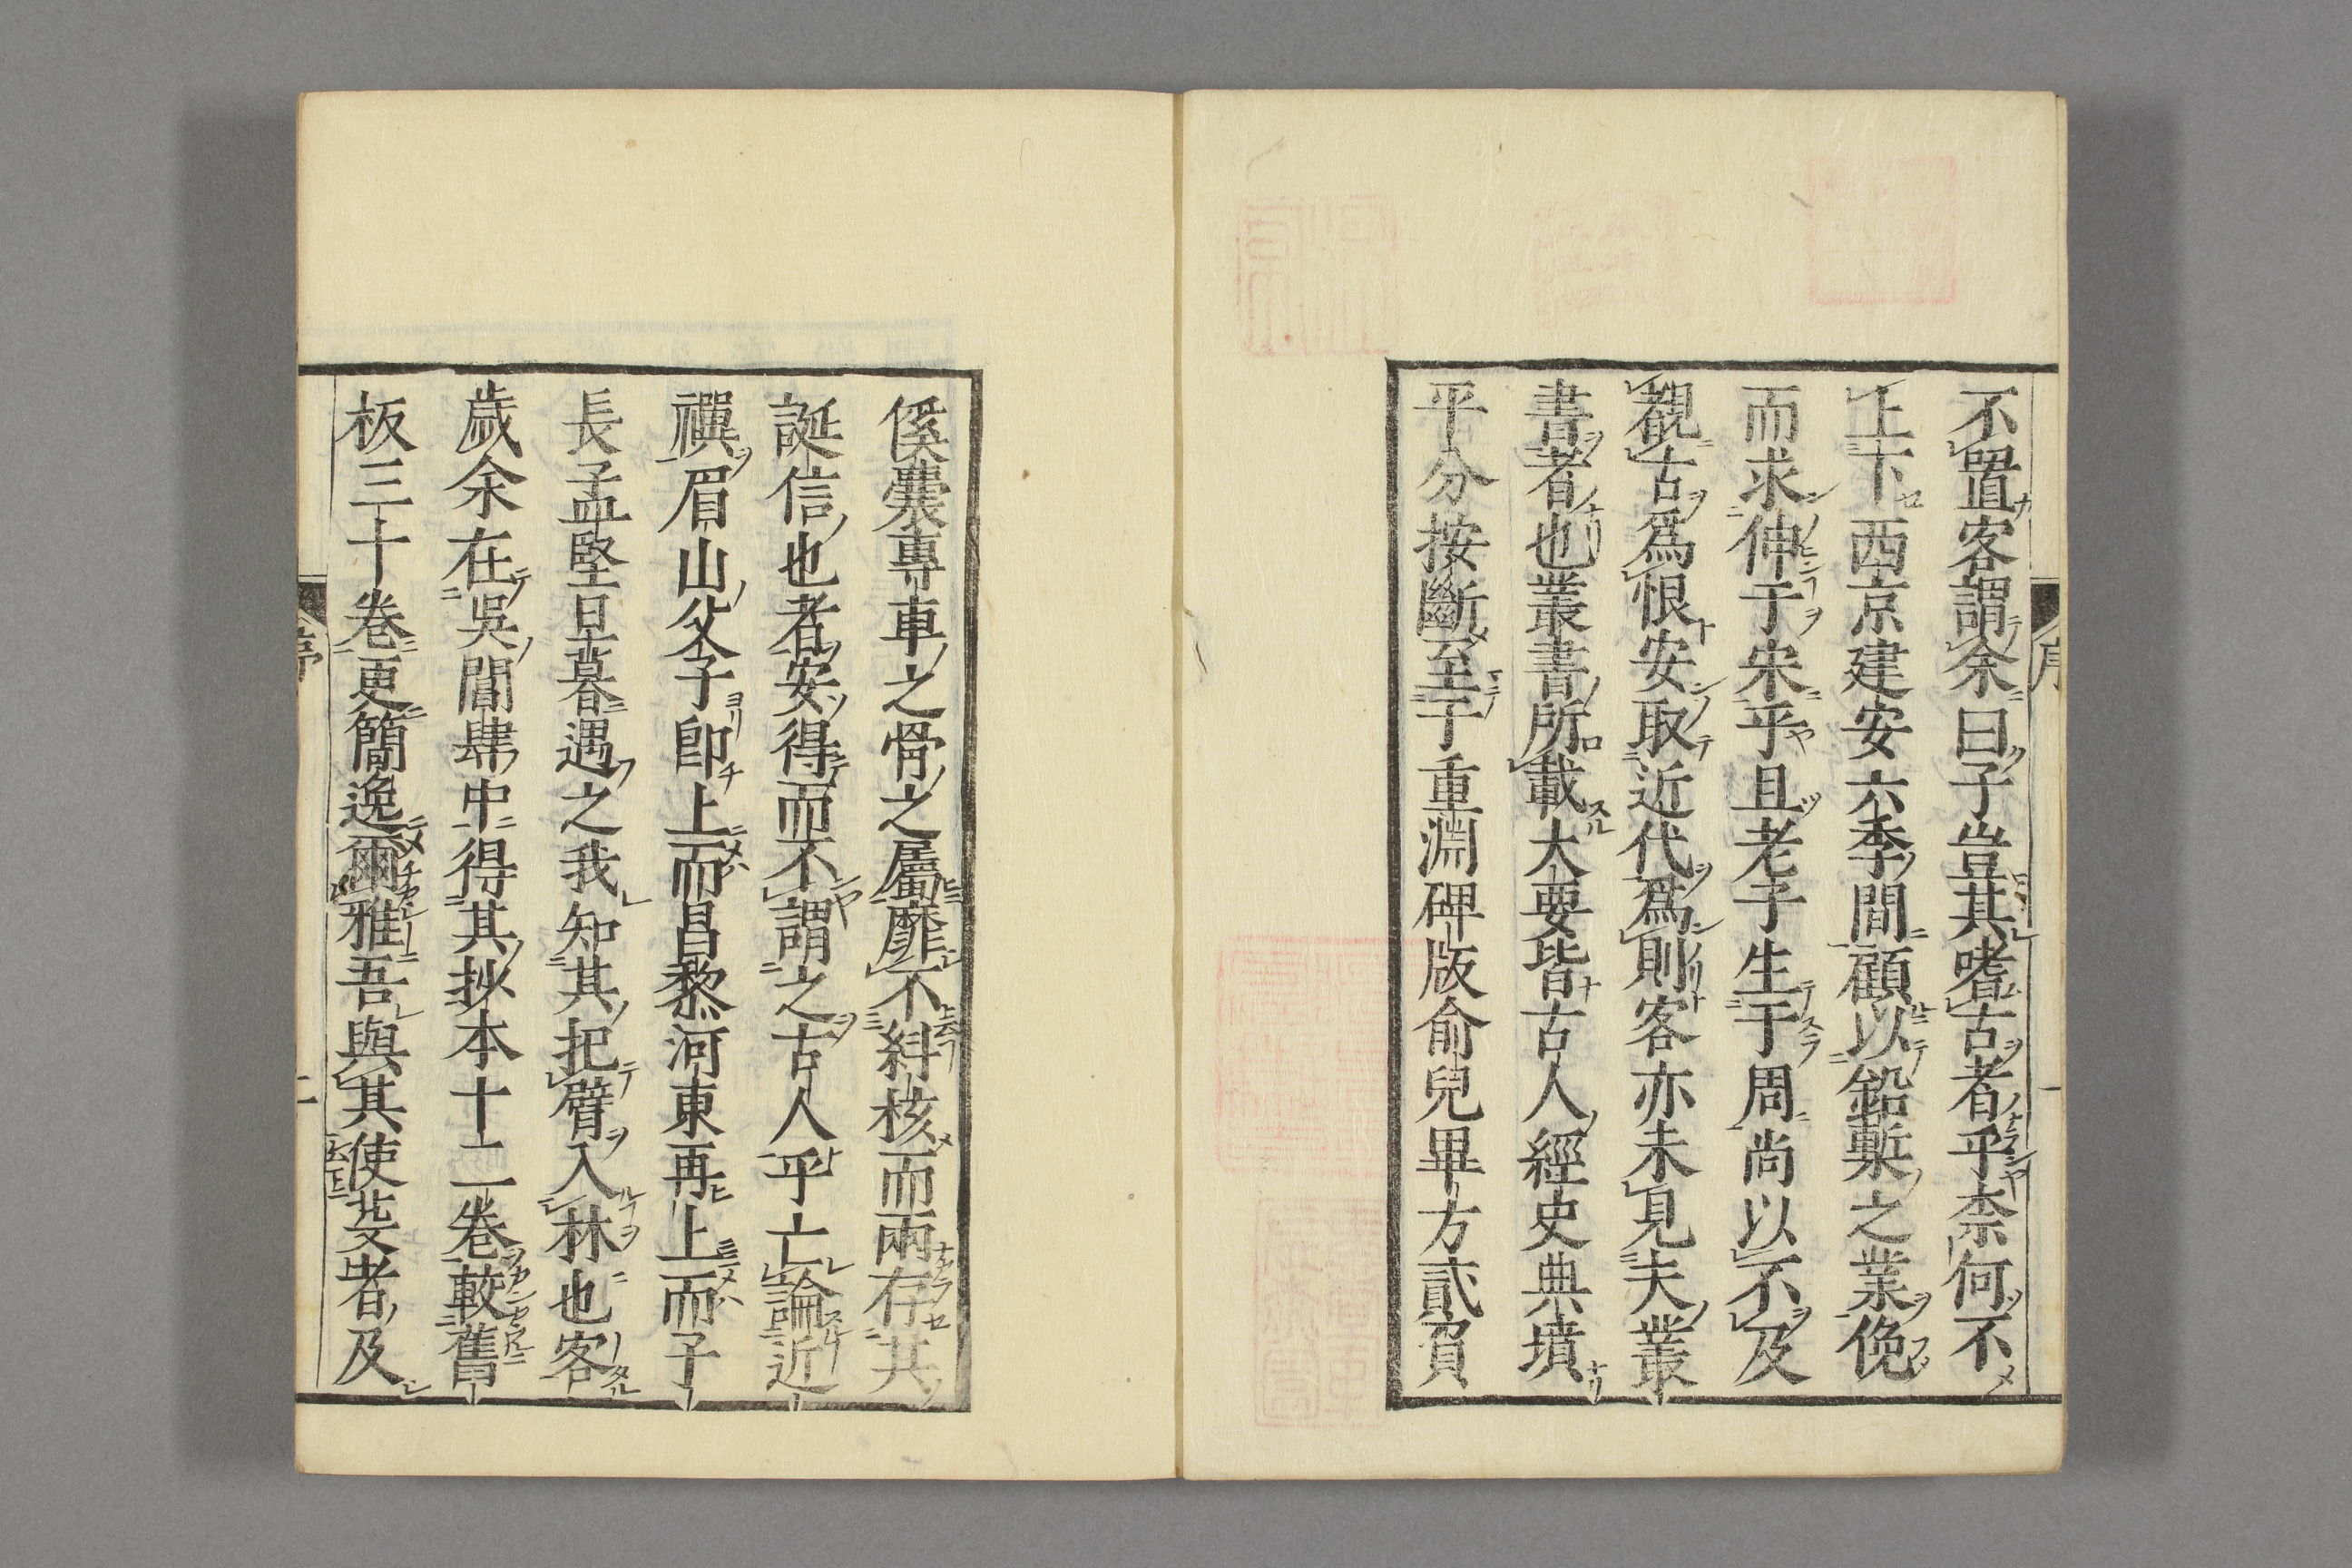 不置客謂余曰子豈其嗜古者乎柰何不
上下西京建安六季間顧以鉛槧之業俛
而求伸于宋乎且老子生于周尚以不及
觀古爲恨安取近代爲則客亦未見夫叢
書者也叢書所載大要皆古人經史典墳
平分按斷至于重淵碑版俞兒畢方貳負
傒囊專車之骨之屬靡不紏核而兩存其
誕信也者安得而不謂之古人乎亡論近
襈眉山父子卽上而昌黎河東再上而子
長孟堅旦暮遇之我知其把臂入林也客
歲余在吳閶肆中得其抄本十二卷較舊
板三十卷更簡逸爾雅吾與其使芟者及
序
二